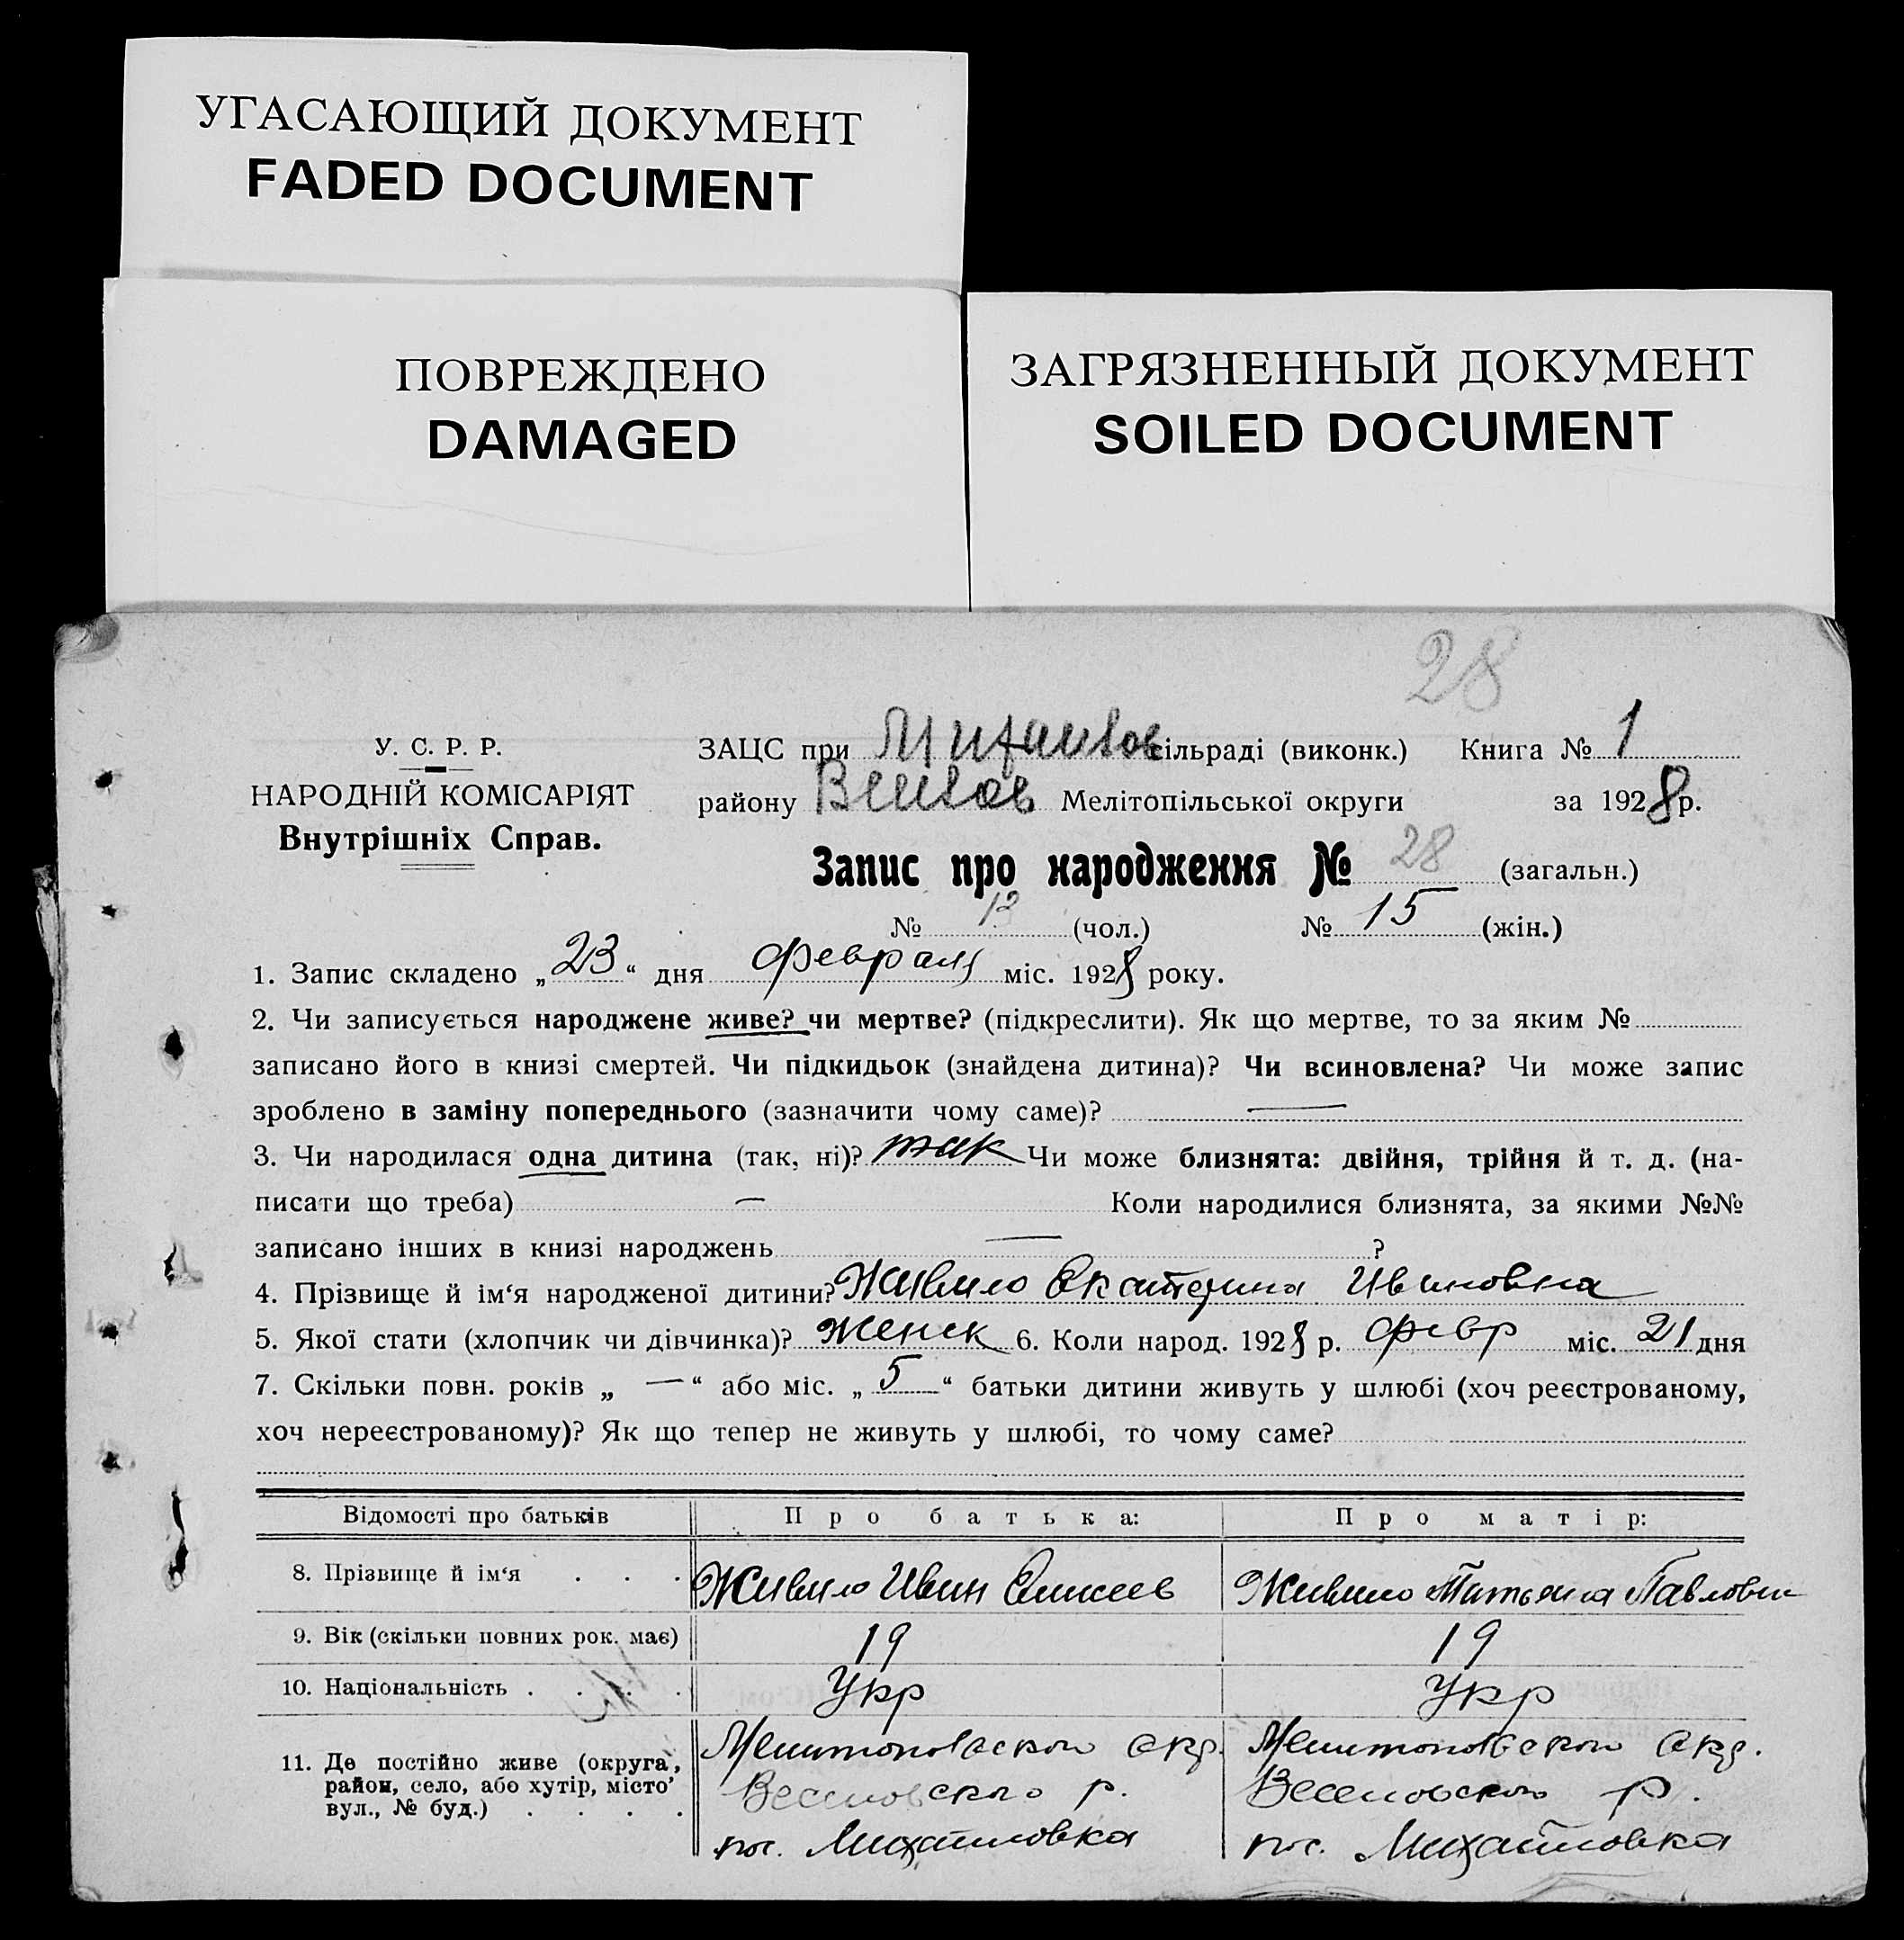 УГАСАЮЩИЙ ДОКУМЕНТ
FADED DOCUMENT
ПОВРЕЖДЕНО
DAMAGED
ЗАГРЯЗНЕННЫЙ ДОКУМЕНТ
SOILED DOCUMENT
28
У. С. Р. Р.
НАРОДНІЙ КОМІСАРІЯТ
Внутрішніх Справ.
ЗАЦС при Михайлов сільраді (виконк.) Книга № 1
району Веселов Мелітопільської округи за 1928 р.
Запис про народження № 28 (загальн.)
№ 13 (чол.) № 15 (жін.)
1. Запис складено „23“ дня февраля міс. 1928 року.
2. Чи записується народжене живе? чи мертве? (підкреслити). Як що мертве, то за яким №
записано його в книзі смертей. Чи підкидьок (знайдена дитина)? Чи всиновлена? Чи може запис
зроблено в заміну попереднього (зазначити чому саме)? —
3. Чи народилася одна дитина (так, ні)? так Чи може близнята: двійня, трійня й т. д. (на-
писати що треба) — Коли народилися близнята, за якими №№
записано інших в книзі народжень — ?
4. Прізвище й ім‘я народженої дитини? Живило Екатерина Ивановна
5. Якої стати (хлопчик чи дівчинка)? женск 6. Коли народ. 1928 р. февр міс. 21 дня
7. Скільки повн. років „ — “ або міс. „ 5 “ батьки дитини живуть у шлюбі (хоч реєстрованому,
хоч нереєстрованому)? Як що тепер не живуть у шлюбі, то чому саме?
Відомості про батьків Про батька: Про матір:
8. Прізвище й ім‘я . . . Живило Иван Елисеев Живило Татьяна Павловн
9. Вік (скільки повних рок. має) 19 19
10. Національність . . . . Укр Укр
11. Де постійно живе (округа, район, село, або хутір, місто’ вул., № буд.) . . . .
Мелитопольской окр. Мелитопольской окр.
Веселовского р. Веселовского р.
пос. Михайловка пос. Михайловка